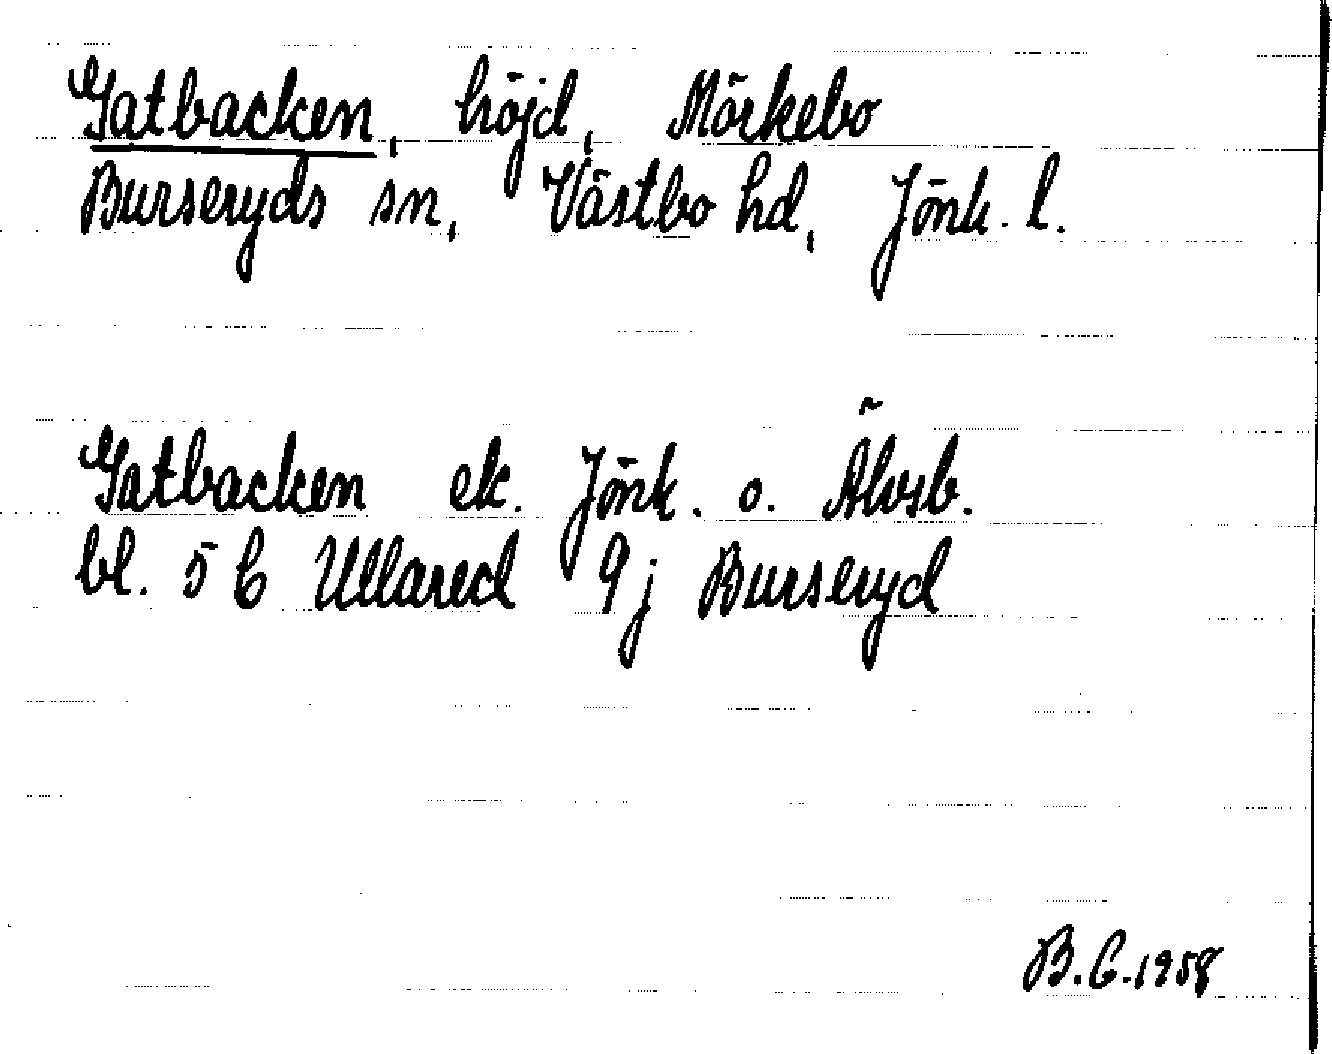 Gatbacken, höjd, Mörkebo
Burseryds sn, Västbo hd, Jönk. l.
Gatbacken ek. Jönk. o. Älvsb.
bl. 5 C Ullared 9j Burseryd
B.C. 1958